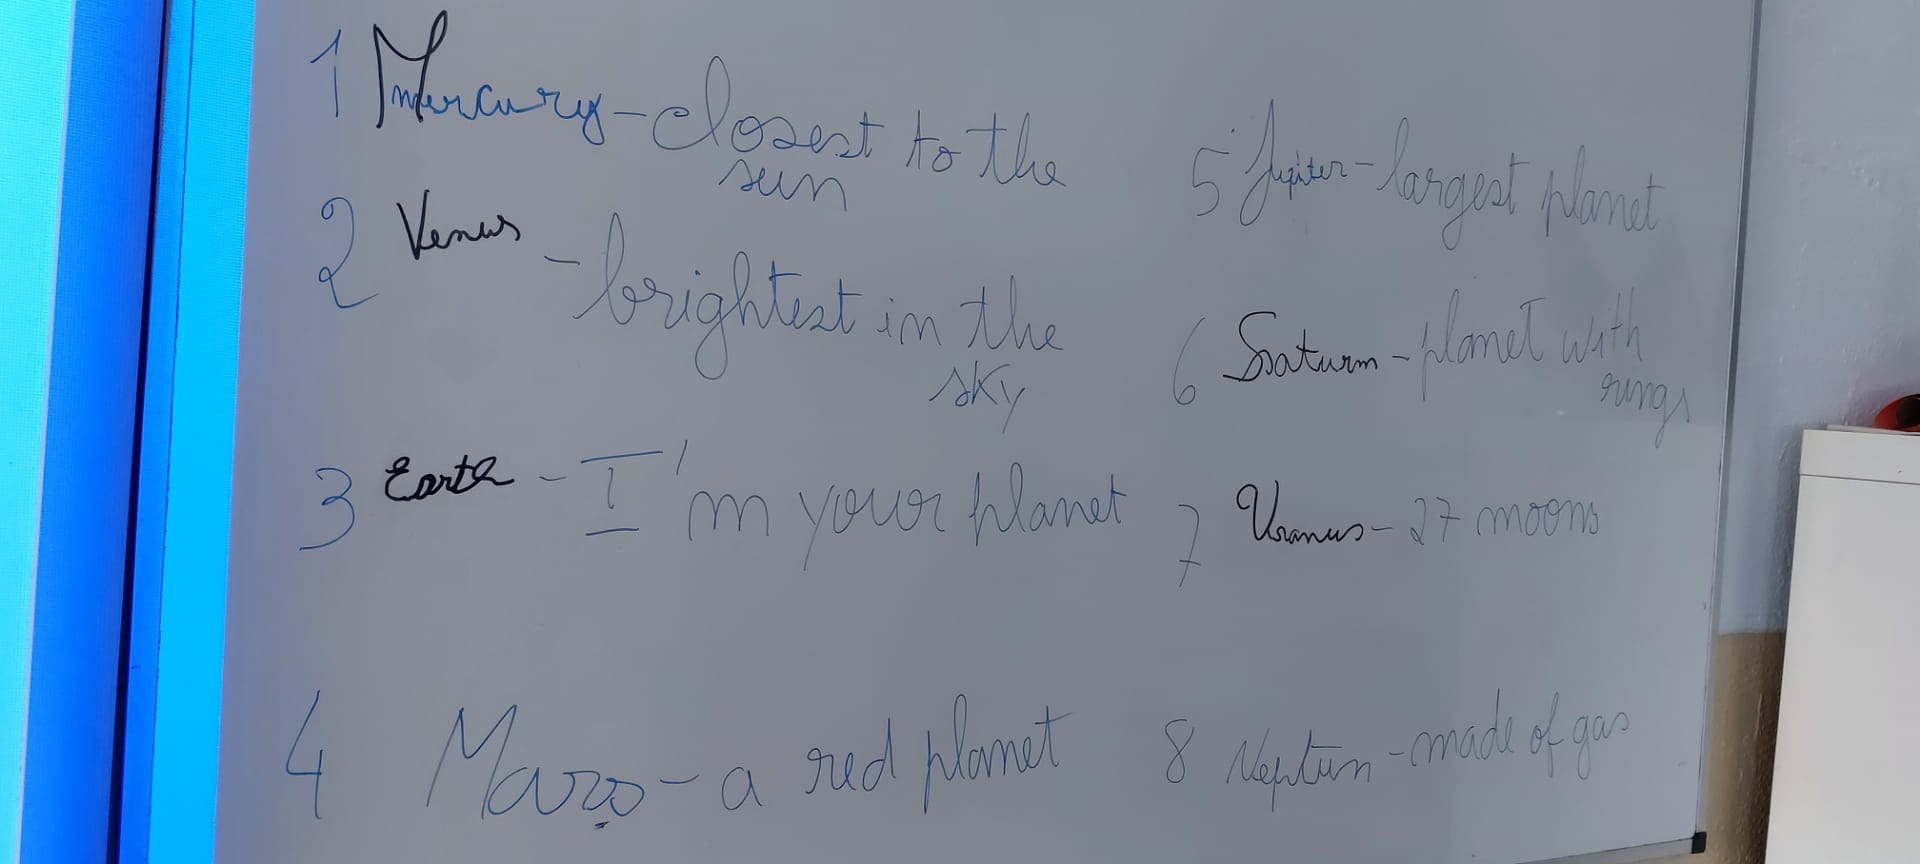 1 Mercury - closest to the
sun
2 Venus - brightest in the
sky
3 Earth - I'm your planet
4 Mars - a red planet
5 Jupiter - largest planet
6 Saturn - planet with
rings
7 Uranus - 27 moons
8 Neptun - made of gas